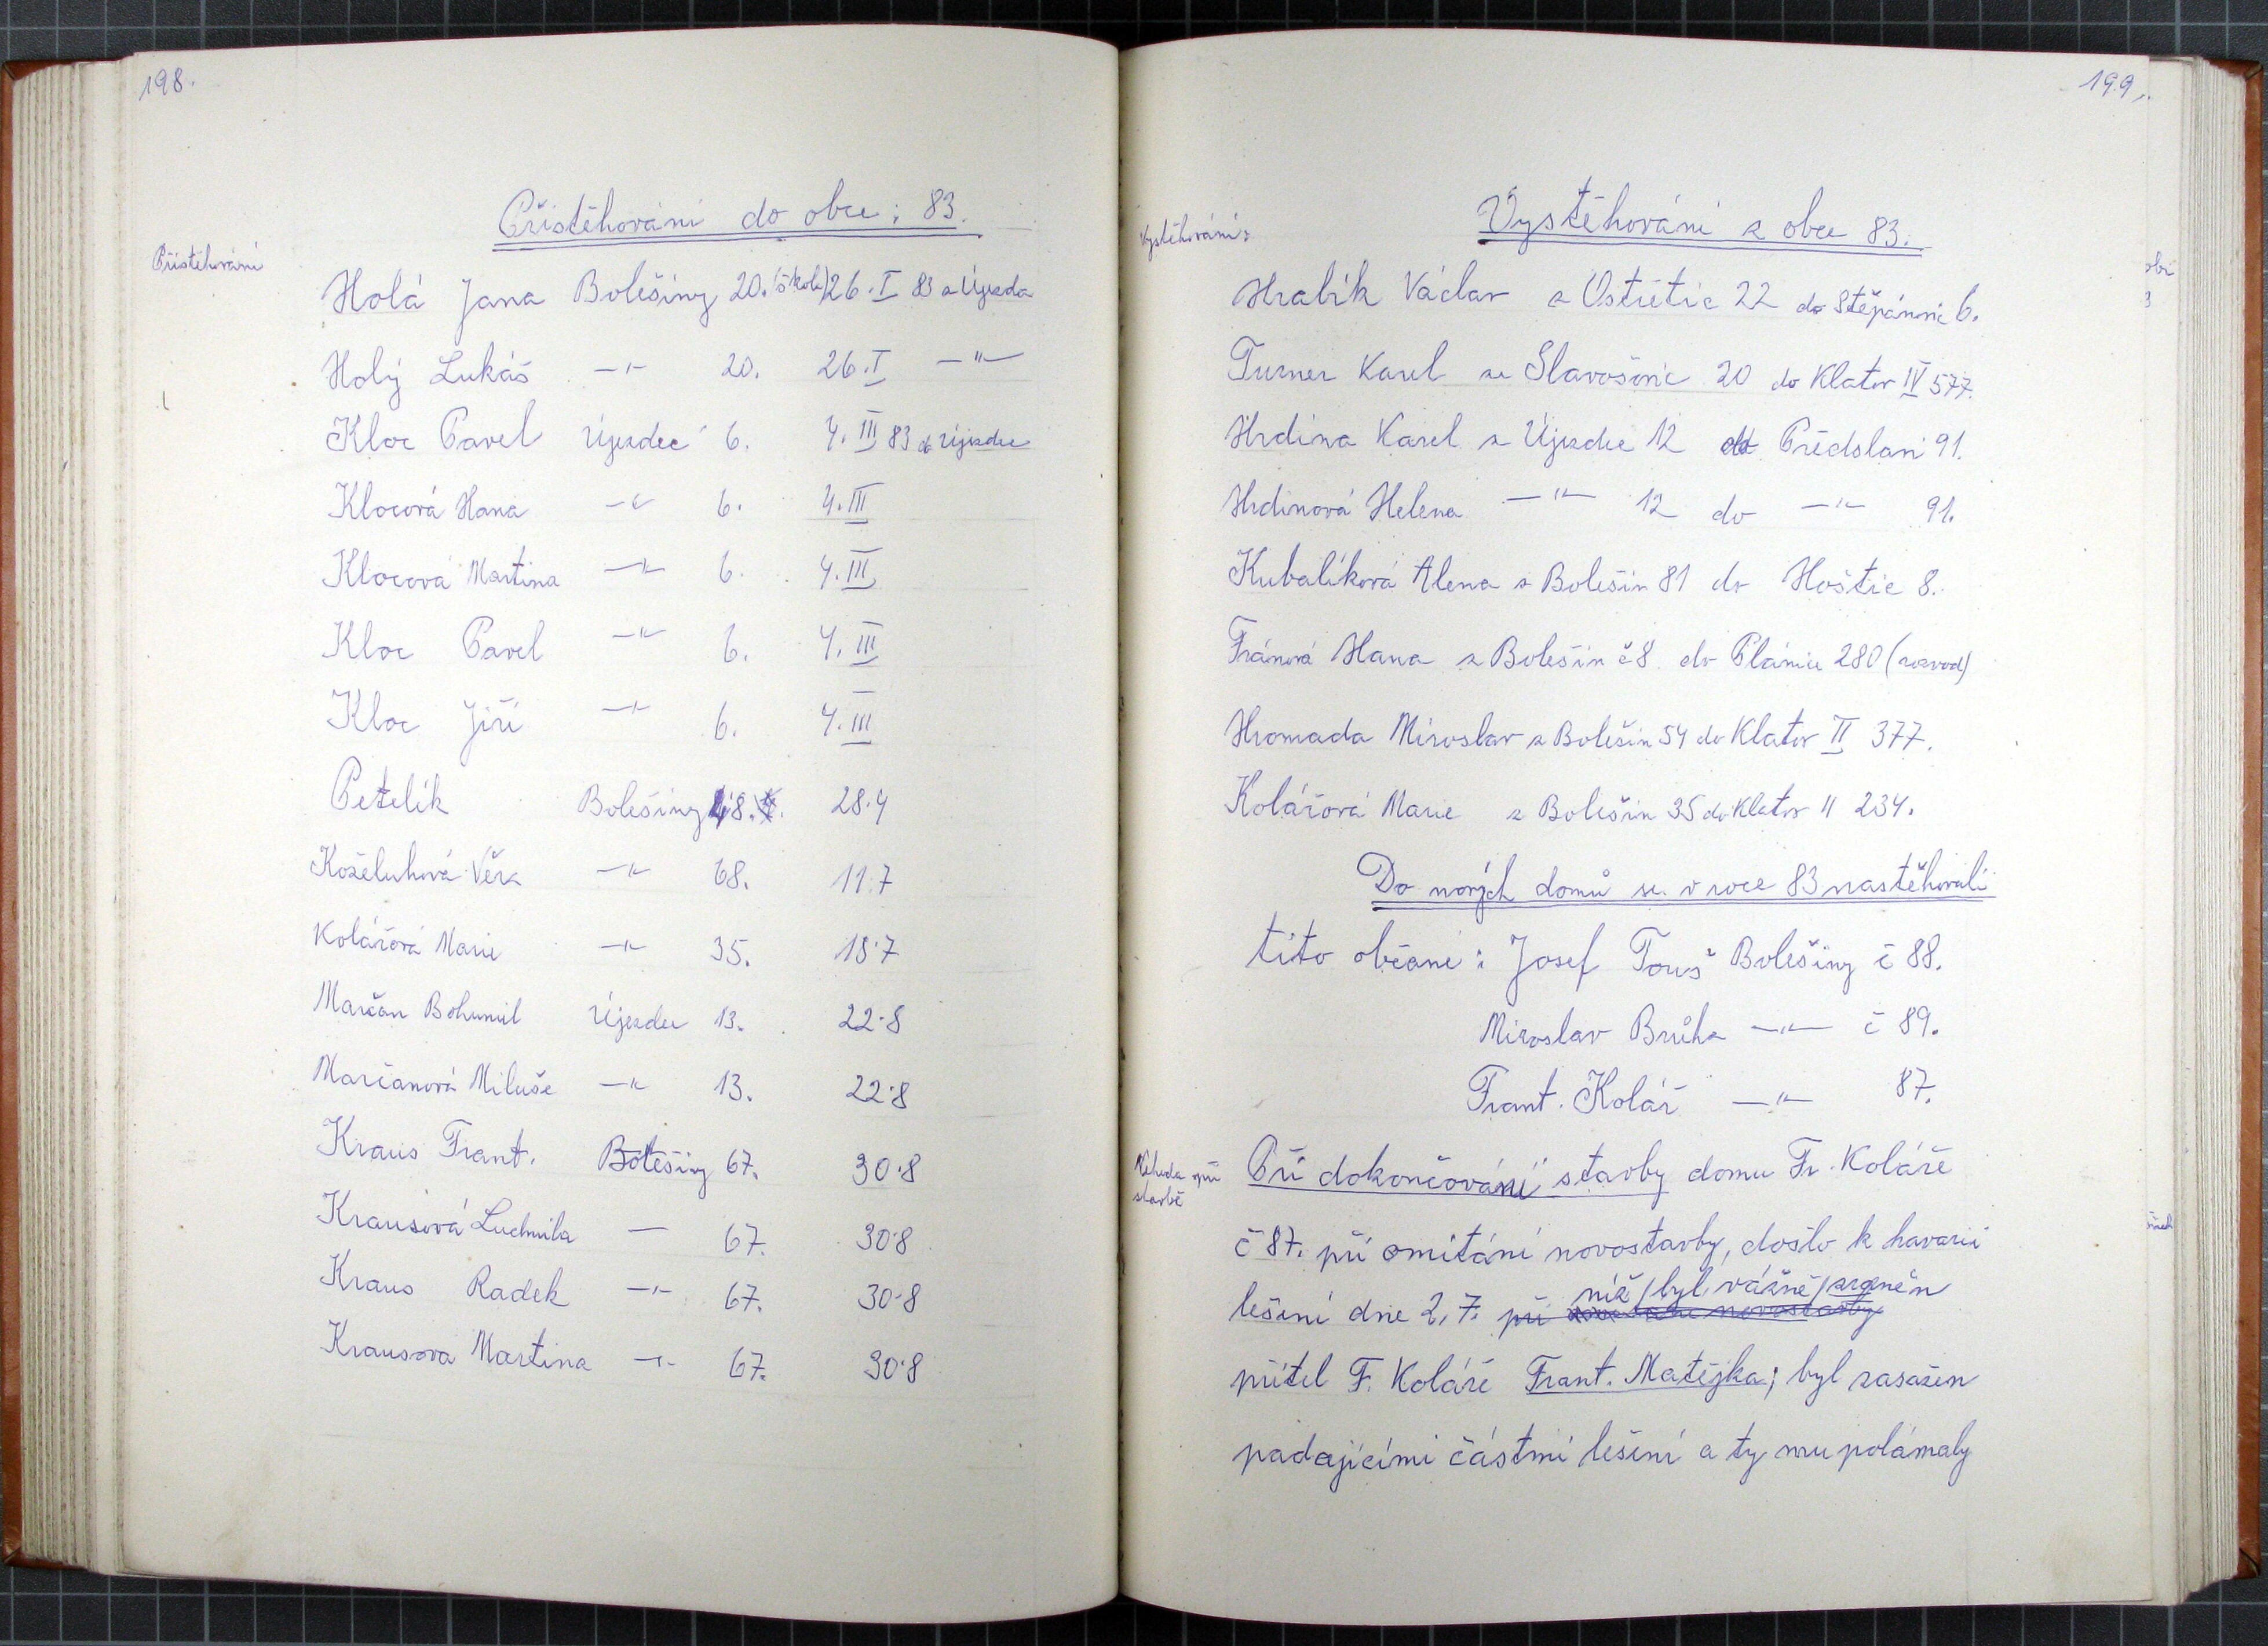 198.
Přistěhování do obce: 83.
Přistěhování
Holá Jana Bolešiny 20. (škola) 26. I 83 z Újezda
Holý Lukáš —"— 20. 26. I —"—
Kloc Pavel Újezdec 6. 4. III 83 do Újezdce
Klocová Hana —"— 6. 4. III
Klocová Martina —"— 6. 4. III
Kloc Pavel —"— 6. 4. III
Kloc Jiří —"— 6. 4. III
Petelík Bolešiny 28.4
Koželuhová Věra —"— 68. 11.7
Kolářová Marie —"— 35. 18.7
Marčan Bohumil Újezdec 13. 22.8
Marčanová Miluše —"— 13. 22.8
Kraus Frant. Bolešiny 67. 30.8
Krausová Ludmila — 67. 30.8
Kraus Radek —"— 67. 30.8
Krausova Martina —"— 67. 30.8
199.
Vystěhování z obce 83.
Vystěhování:
Hralík Václav z Ostřetic 22 do Štěpánovic 6.
Turner Karel ze Slavošovic 20 do Klatov IV 577.
Hrdina Karel z Újezdce 12 do Předslavi 91.
Hrdinová Helena —"— 12 do —"— 91.
Kubalíková Alena z Bolešin 81 do Hoštic 8.
Fránová Hana z Bolešin č 8 do Plánice 280 (rozvod)
Hromada Miroslav z Bolešin 54 do Klatov II 377.
Kolářová Marie z Bolešin 35 do Klatov II 234.
Do nových domů se v roce 83 nastěhovali
tito občané: Josef Touš Bolešiny č 88.
Miroslav Brůha —"— č 89.
Frant. Kolář —"— 87.
Nehoda při
stavbě
Při dokončování stavby domu Fr. Koláře
č 87. při omítání novostavby, došlo k havarii
níž / byl vážně / zraněn
lešení dne 2.7. při novostavby
přítel F. Koláře Frant. Matějka; byl zasažen
padajícími částmi lešení a ty mu polámaly